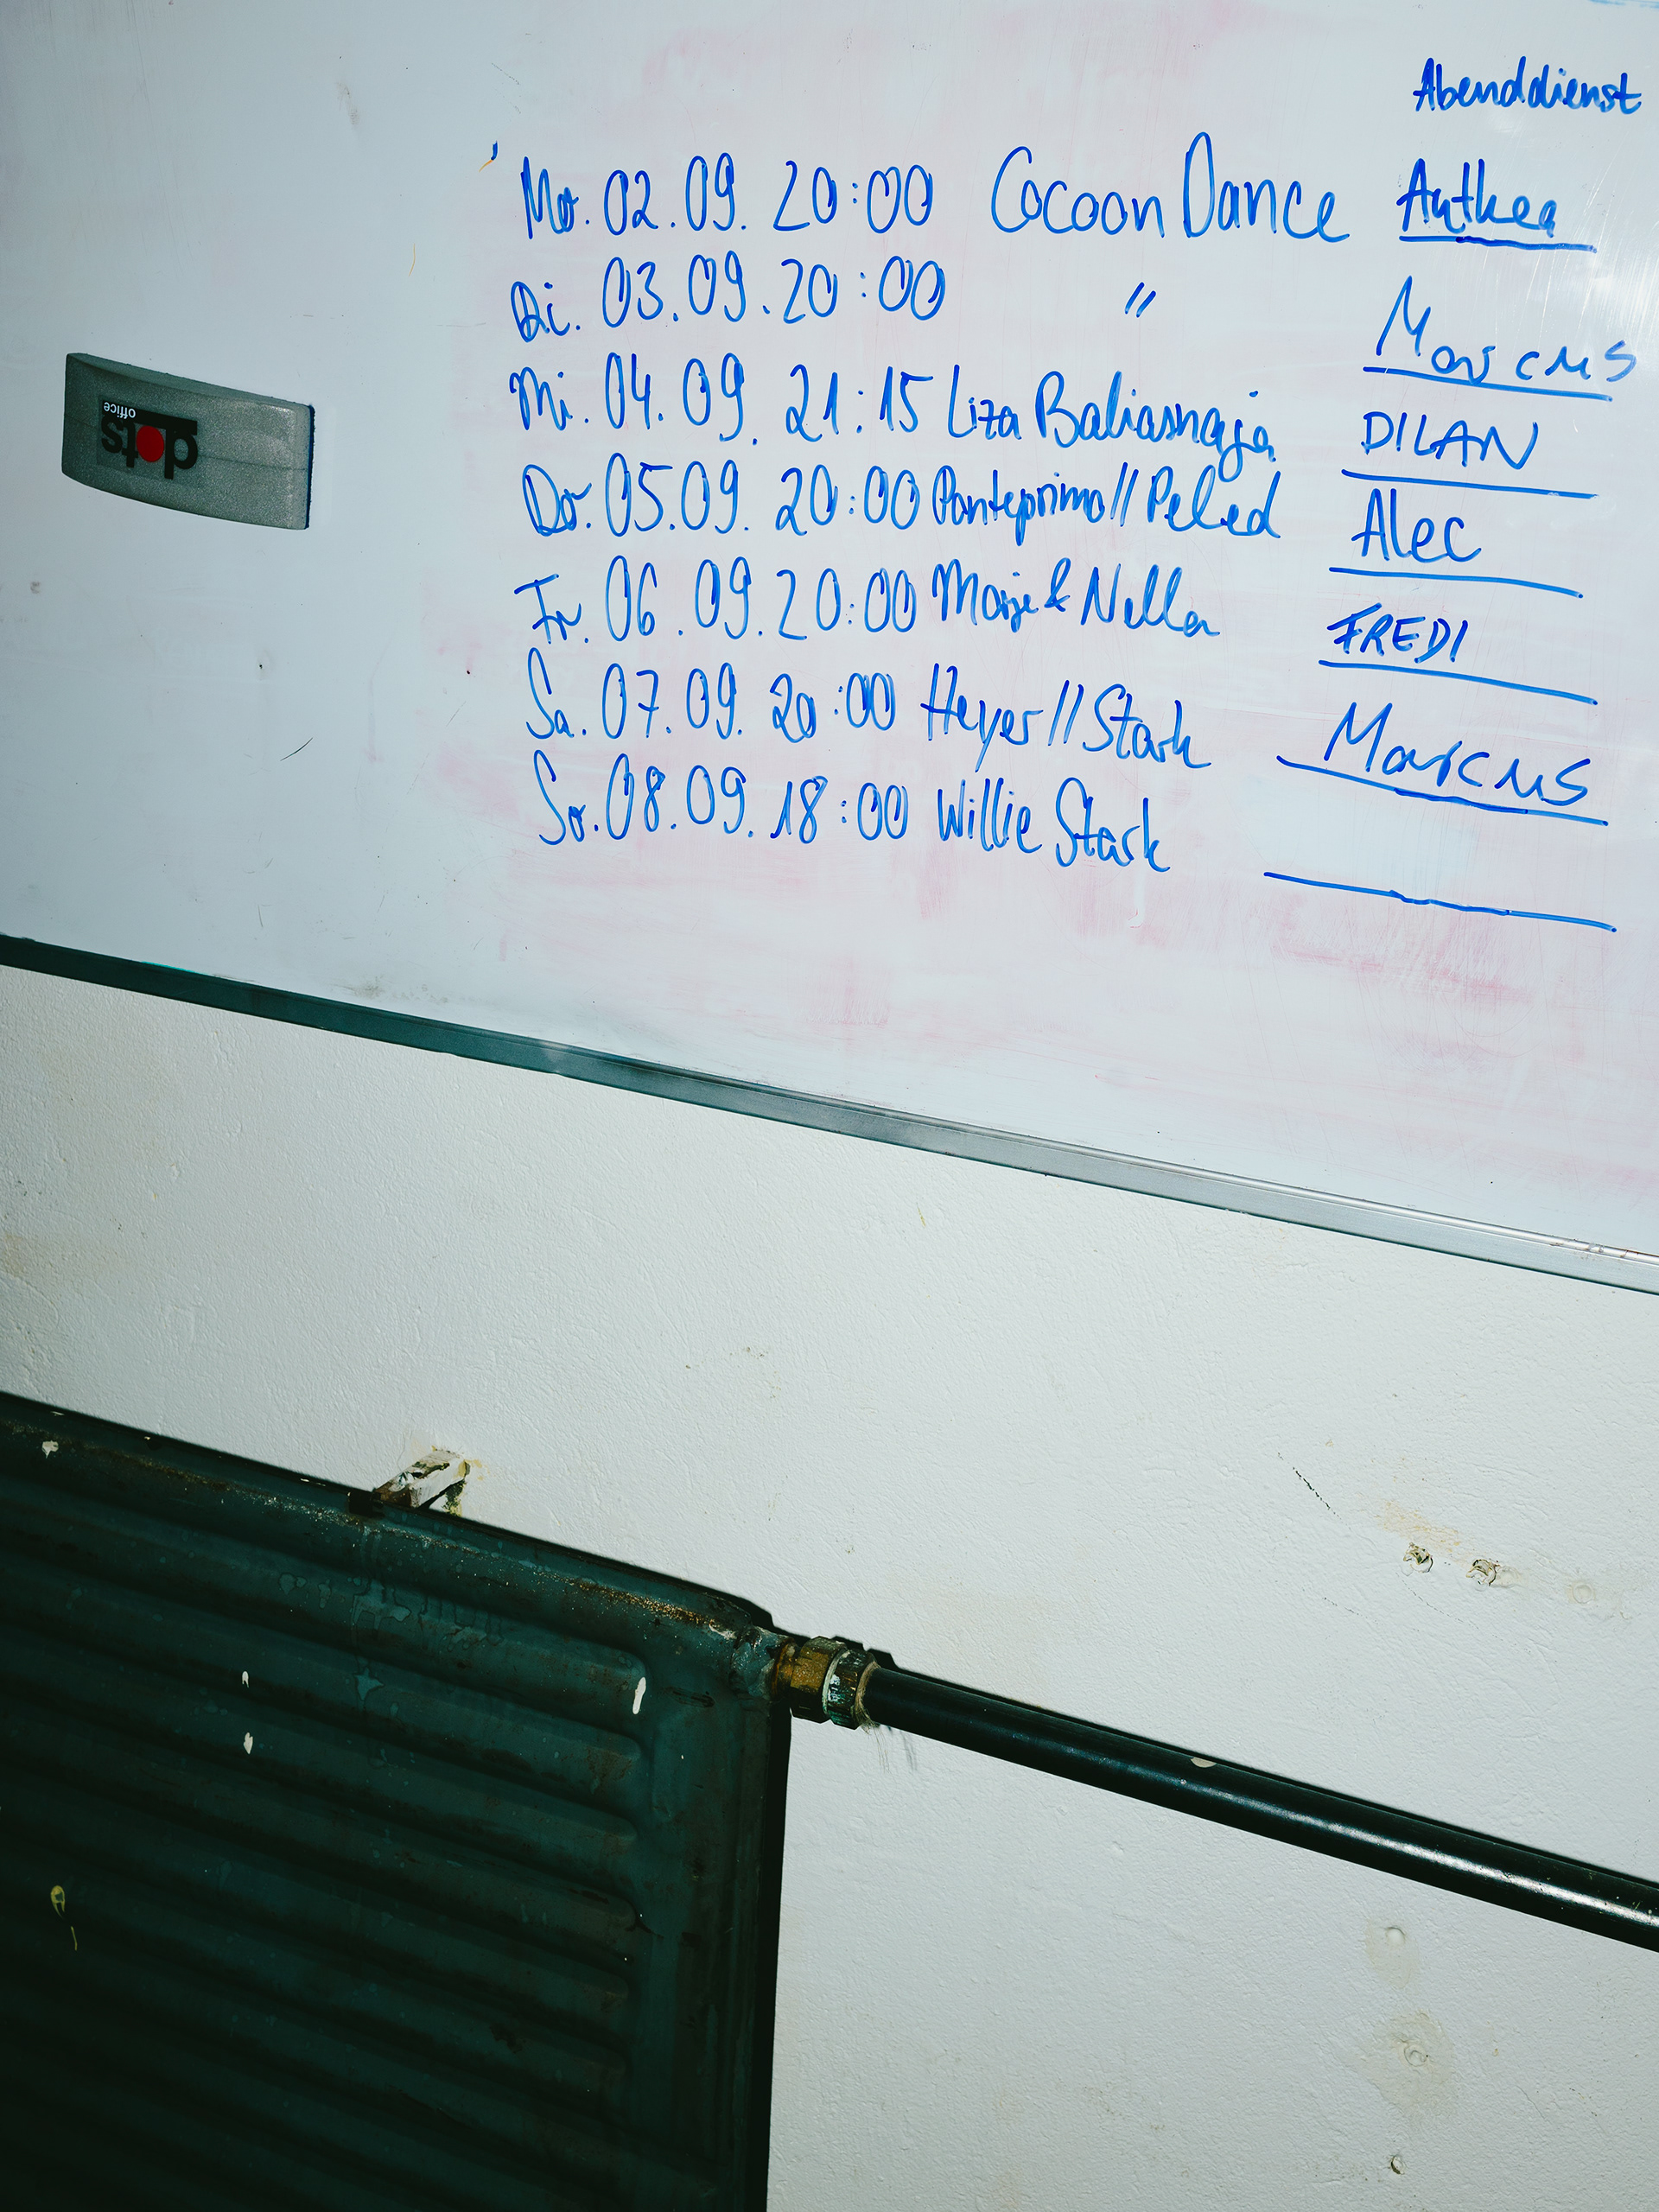 Abenddienst
Mo. 02.09. 20:00 Cocoon Dance Anthea
Di. 03.09. 20:00 " Marcus
Mi. 04.09. 21:15 Liza Baliasnaja DILAN
Do. 05.09. 20:00 Panteprimo // Peled Alec
Fr. 06.09. 20:00 & Nella FREDI
Sa. 07.09. 20:00 Heyer // Stark Marcus
So. 08.09. 18:00 Willie Stark
dots
office